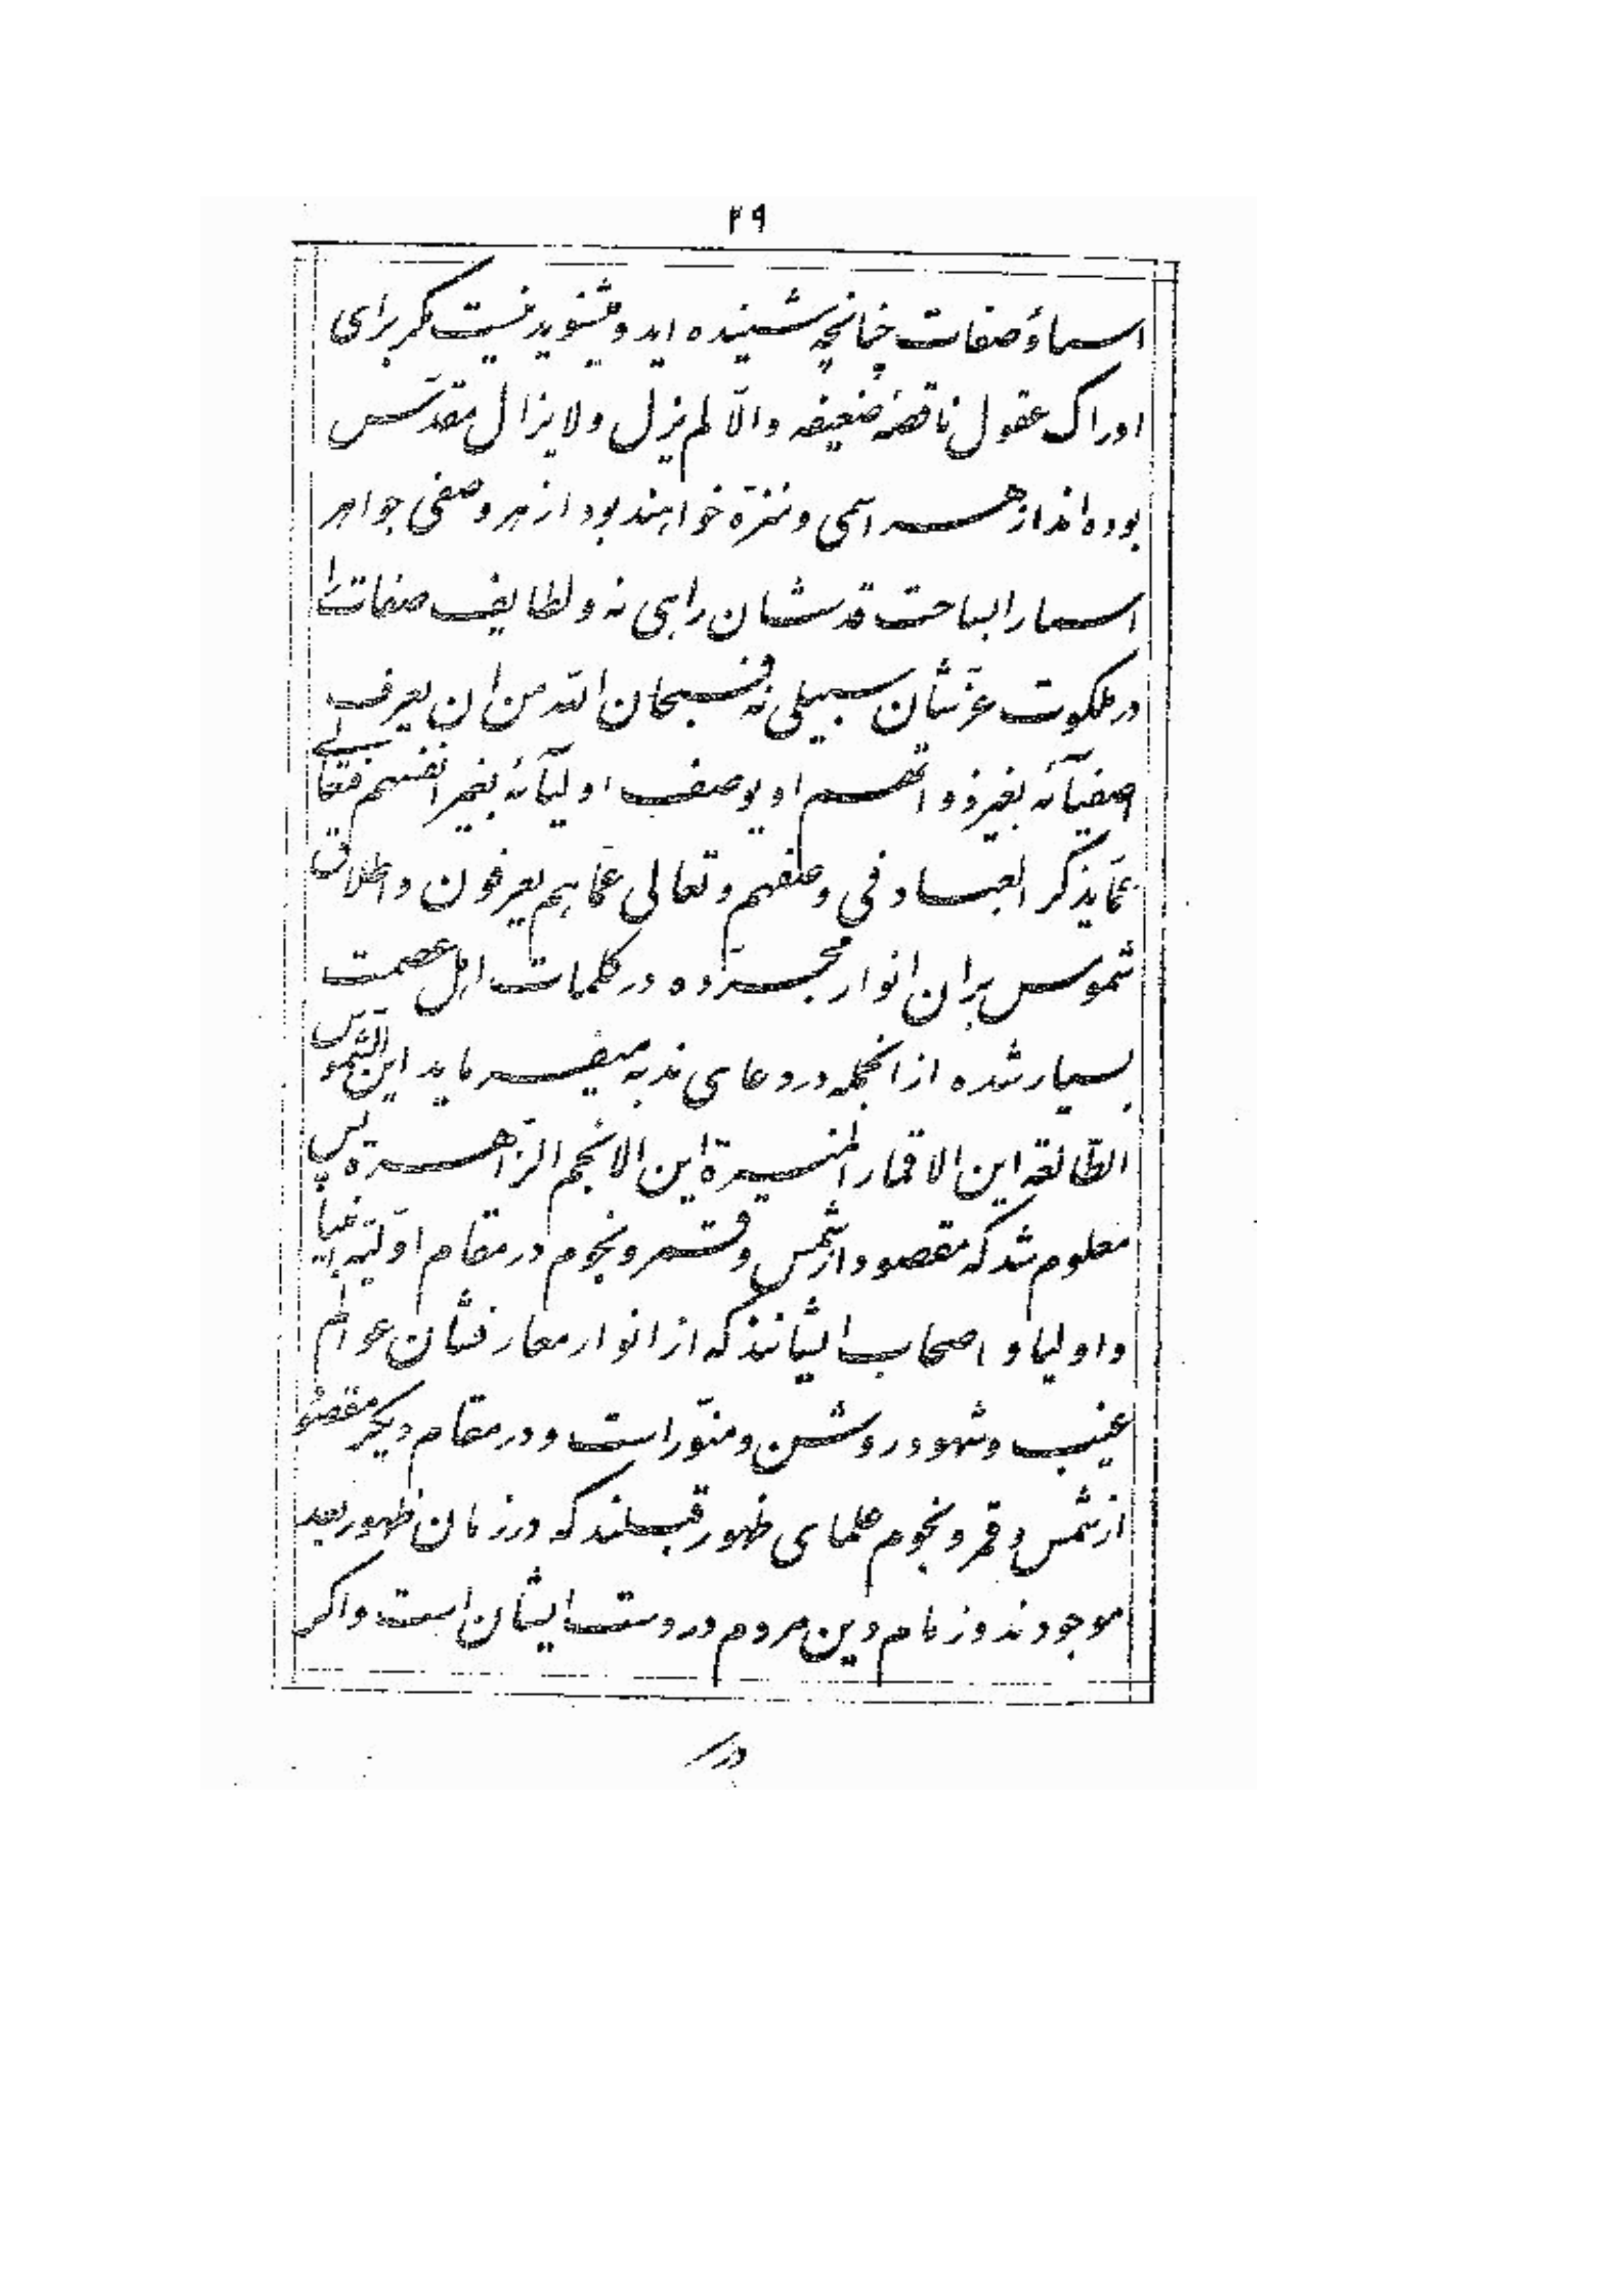 ۲۹
اسماء و صفات چنانچه شنیده اید و میشنوید نیست مگر برای
ادراک عقول ناقصهٔ ضعیفه والّا لم یزل و لا یزال مقدّس
بوده‌اند از هر اسمی و منزّه خواهند بود از هر وصفی جواهر
اسما را بساحت قدسشان راهی نه و لطایف صفات را
در ملکوت عزّشان سبیلی نه فسبحان اللّه من ان یعرف
اصفیآئه بغیر ذواتهم او یوصف اولیآئه بغیر انفسهم فتعالی
عمّا یذکر العباد فی وصفهم و تعالی عمّا هم یعرفون و اطلاق
شموس بر ان انوار مجرّده در کلمات اهل عصمت
بسیار شده از انجمله در دعای ندبه میفرماید این الشّموس
الطّالعة این الاقمار المنیرة این الانجم الزّاهرة پس
معلوم شد که مقصود از شمس و قمر و نجوم در مقام اوّلیّه انبیا
و اولیا و اصحاب ایشانند که از انوار معارفشان عوالم
غیب و شهود روشن و منوّر است و در مقام دیگر مقصود
از شمس و قمر و نجوم علمای ظهور قبلند که در زمان ظهور بعد
موجودند و زمام دین مردم در دست ایشان است و اگر
در